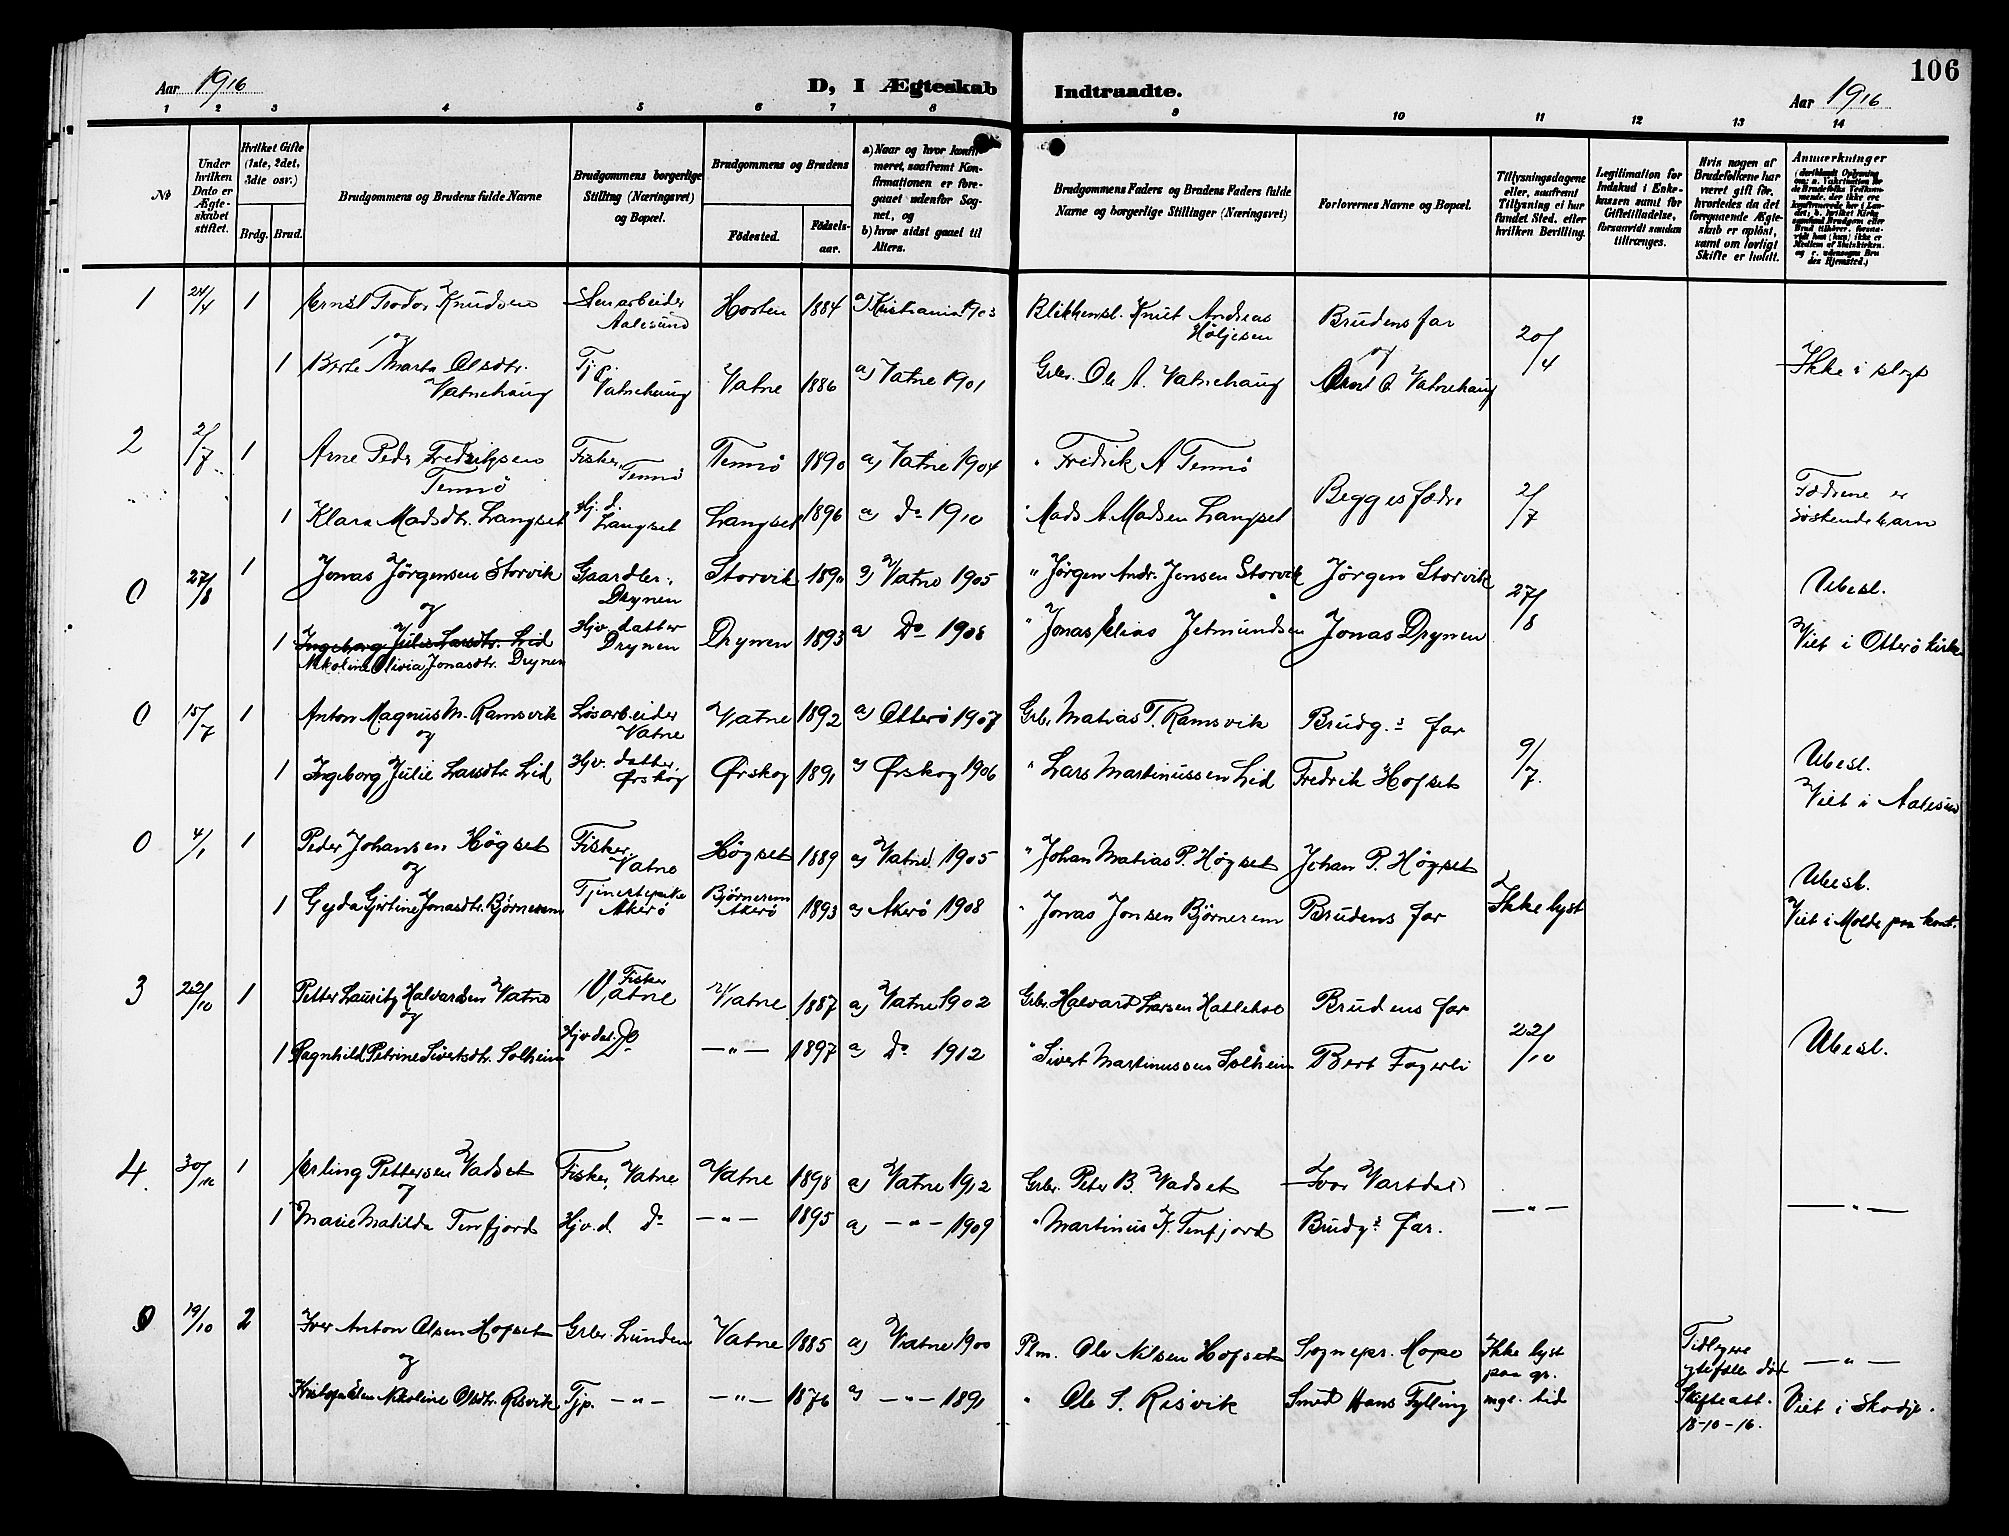 106
Aar 1916
D, I Ægteskab Indtraadte.
Aar 1916
1 2 3 4 5 6 7 8 9 10 11 12 13 14
№
Under hvilken Dato er Ægteskabet stiftet.
Hvilket Gifte (1ste, 2det, 3die osv.)
Brdg. Brud.
Brudgommens og Brudens fulde Navne
Brudgommens borgerlige Stilling (Næringsvei) og Bopæl.
Brudgommens og Brudens
Fødested.
Fødselsaar.
a) Naar og hvor konfirmeret, saafremt Konfirmationen er foregaaet udenfor Sognet, og
b) hvor sidst gaaet til Alters.
Brudgommens Faders og Brudens Faders fulde Navne og borgerlige Stillinger (Næringsvei)
Forlovernes Navne og Bopæl.
Tillysningsdagene eller, saafremt Tillysning ei har fundet Sted, efter hvilken Bevilling.
Legitimation for Indskud i Enkekassen samt for Giftetilladelse, forsaavidt saadan tiltrænges.
Hvis nogen af Brudefolkene har været gift før, hvorledes da det foregaaende Ægteskab er opløst, samt om lovligt Skifte er holdt.
Anmærkninger
1 24/4 1 Ernst Teodor Knudsen Stenarbeider Aalesund Horten 1884 a) Kristiania 1903 Blikkensl. Knut Andreas Høljesen Brudens far 20/4
og
1 Berte Marta Olsdtr. Vatnehaug Tj.p. Vatnehaug Vatne 1886 a) Vatne 1901 Grbr. Ole A. Vatnehaug og O. Vatnehaug Ikke i slegt
2 2/7 1 Arne Peder Fredriksen Tennø Fisker, Tennø Tennø 1890 a) Vatne 1904 " Fredrik A Tennø Begges fædre 2/7
1 Klara Madsdtr. Langset Hj. d. Langset Langset 1896 a) Do 1910 " Mads A. Madsen Langset Fædrene er søskendebarn
0 27/8 1 Jonas Jørgensen Storvik Gaardbr. Drynen Storvik 1890 a) Vatne 1905 " Jørgen Andr. Jensen Storvik Jørgen Storvik 27/8 Ubesl.
og
1 Ingeborg Julie Larsdtr. Lid
Nikoline Olivia Jonasdtr. Drynen Hjv. datter Drynen Drynen 1893 a Do 1908 " Jonas Elias Jetmundsen Jonas Drynen Viet i Otterø kirke
0 15/7 1 Anton Magnus M. Ramsvik Løsarbeider Vatne Vatne 1892 a) Otterø 1907 Grbr. Matias T. Ramsvik Brudg.s far 9/7
og
1 Ingeborg Julie Larsdtr. Lid Hjv. datter, Ørskog Ørskog 1891 a) Ørskog 1906 " Lars Martinussen Lid Fredrik Hofset Ubesl.
Viet i Aalesund
0 4/1 1 Peder Johansen Høgset Fisker, Vatne Høgset 1889 a) Vatne 1905 " Johan Matias P. Høgset Johan P. Høgset Ubesl.
og
1 Gyda Girtine Jonasdtr. Bjørnerem Tjenestepike Akerø Bjørnerem Akerø 1893 a) Akerø 1908 " Jonas Jonsen Bjørnerem Brudens far Ikke lyst Viet i Molde paa kont.
3 22/10 1 Petter Lauritz Halvardsen Vatne Fisker Vatne Vatne 1887 a) Vatne 1902 Grbr. Halvard Larsen Hatlehol Brudens far
og
1 Ragnhild Petrine Sivertsdtr. Solheim Hjv. dat. Do —"— 1897 a) Do 1912 " Sivert Martinussen Solheim Bert Fagerli 22/10 Ubesl.
4 30/12 1 Erling Pettersen Vadset Fisker, Vatne Vatne 1898 a) Vatne 1912 Grbr. Peter B. Vadset Ivar Vartdal
og
1 Marie Matilde Tenfjord Hjv. d. Do —"— 1895 a —"— 1909 " Martinus K. Tenfjord Brudg.s far. —"— —"—
0 19/10 2 Iver Anton Olsen Hofset Grbr. Lunden Vatne 1885 a) Vatne 1900 Plm. Ole Nilsen Hofset Sognepr. Hope Ikke lyst paa gr. Tidligere gtefelle død —"—
og
Elen Nikoline Olsdtr. Risvik Tjp. —"— —"— 1876 a) —"— 1891 " Ole S. Risvik Smed Hans Fylling mgl. tid Skifteatt. 18-10-16. Viet i Skodje.